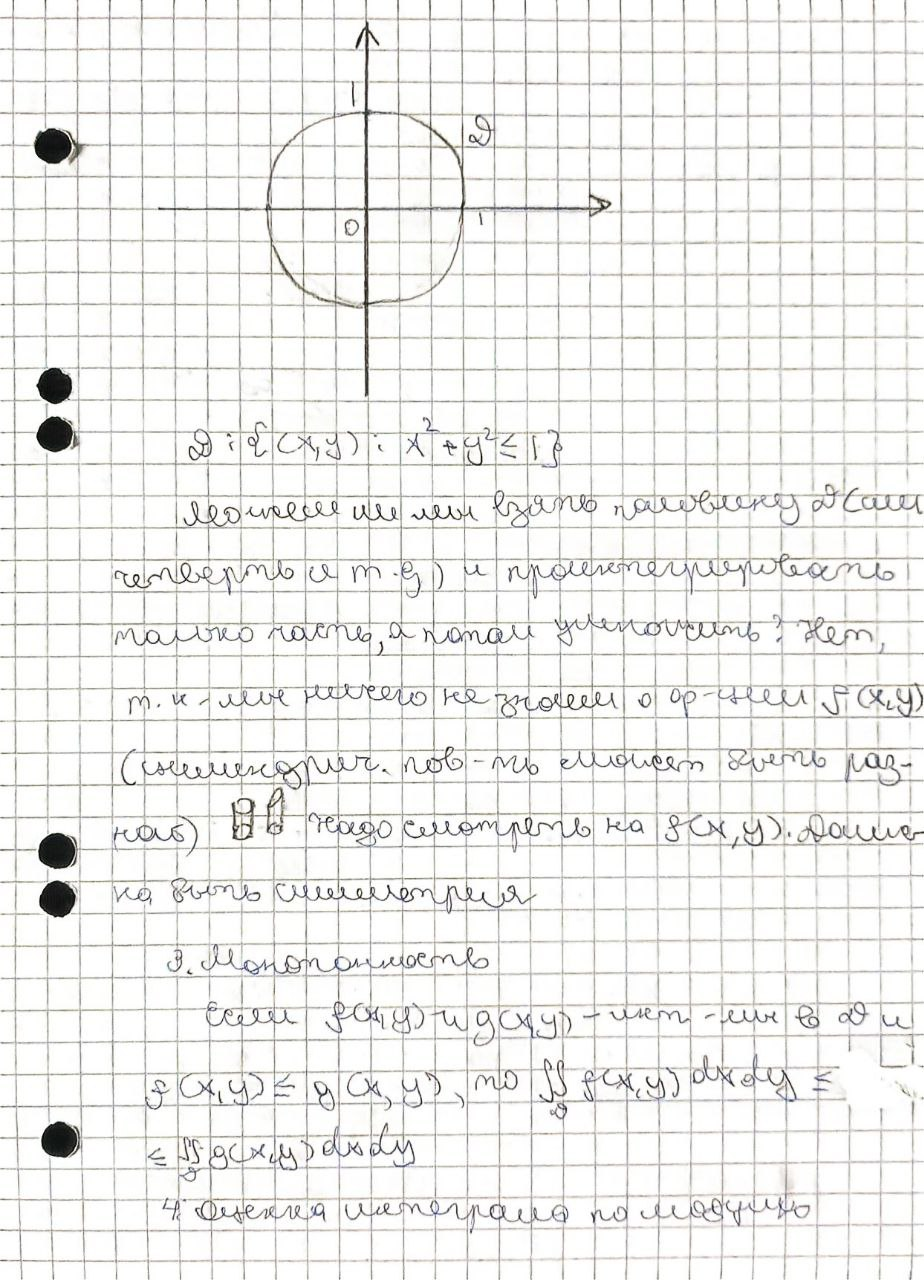 1
D
0
1
D : {(x,y) : x² + y² ≤ 1}
Можем ли мы взять половину D (или
четверть и т.д) и проинтегрировать
только часть, а потом умножить? Нет,
т.к - мы ничего не знаем о ф-ции f(x,y)
(цилиндрич. пов-ть может быть раз-
ной) надо смотреть на f(x,y). Долж-
на быть симметрия
3. Монотонность
Если f(x,y) и g(x,y) - инт-мы в D и
f(x,y) ≤ g(x,y), то ∬_D f(x,y) dxdy ≤
≤ ∬_D g(x,y) dxdy
4. Оценка интеграла по модулю